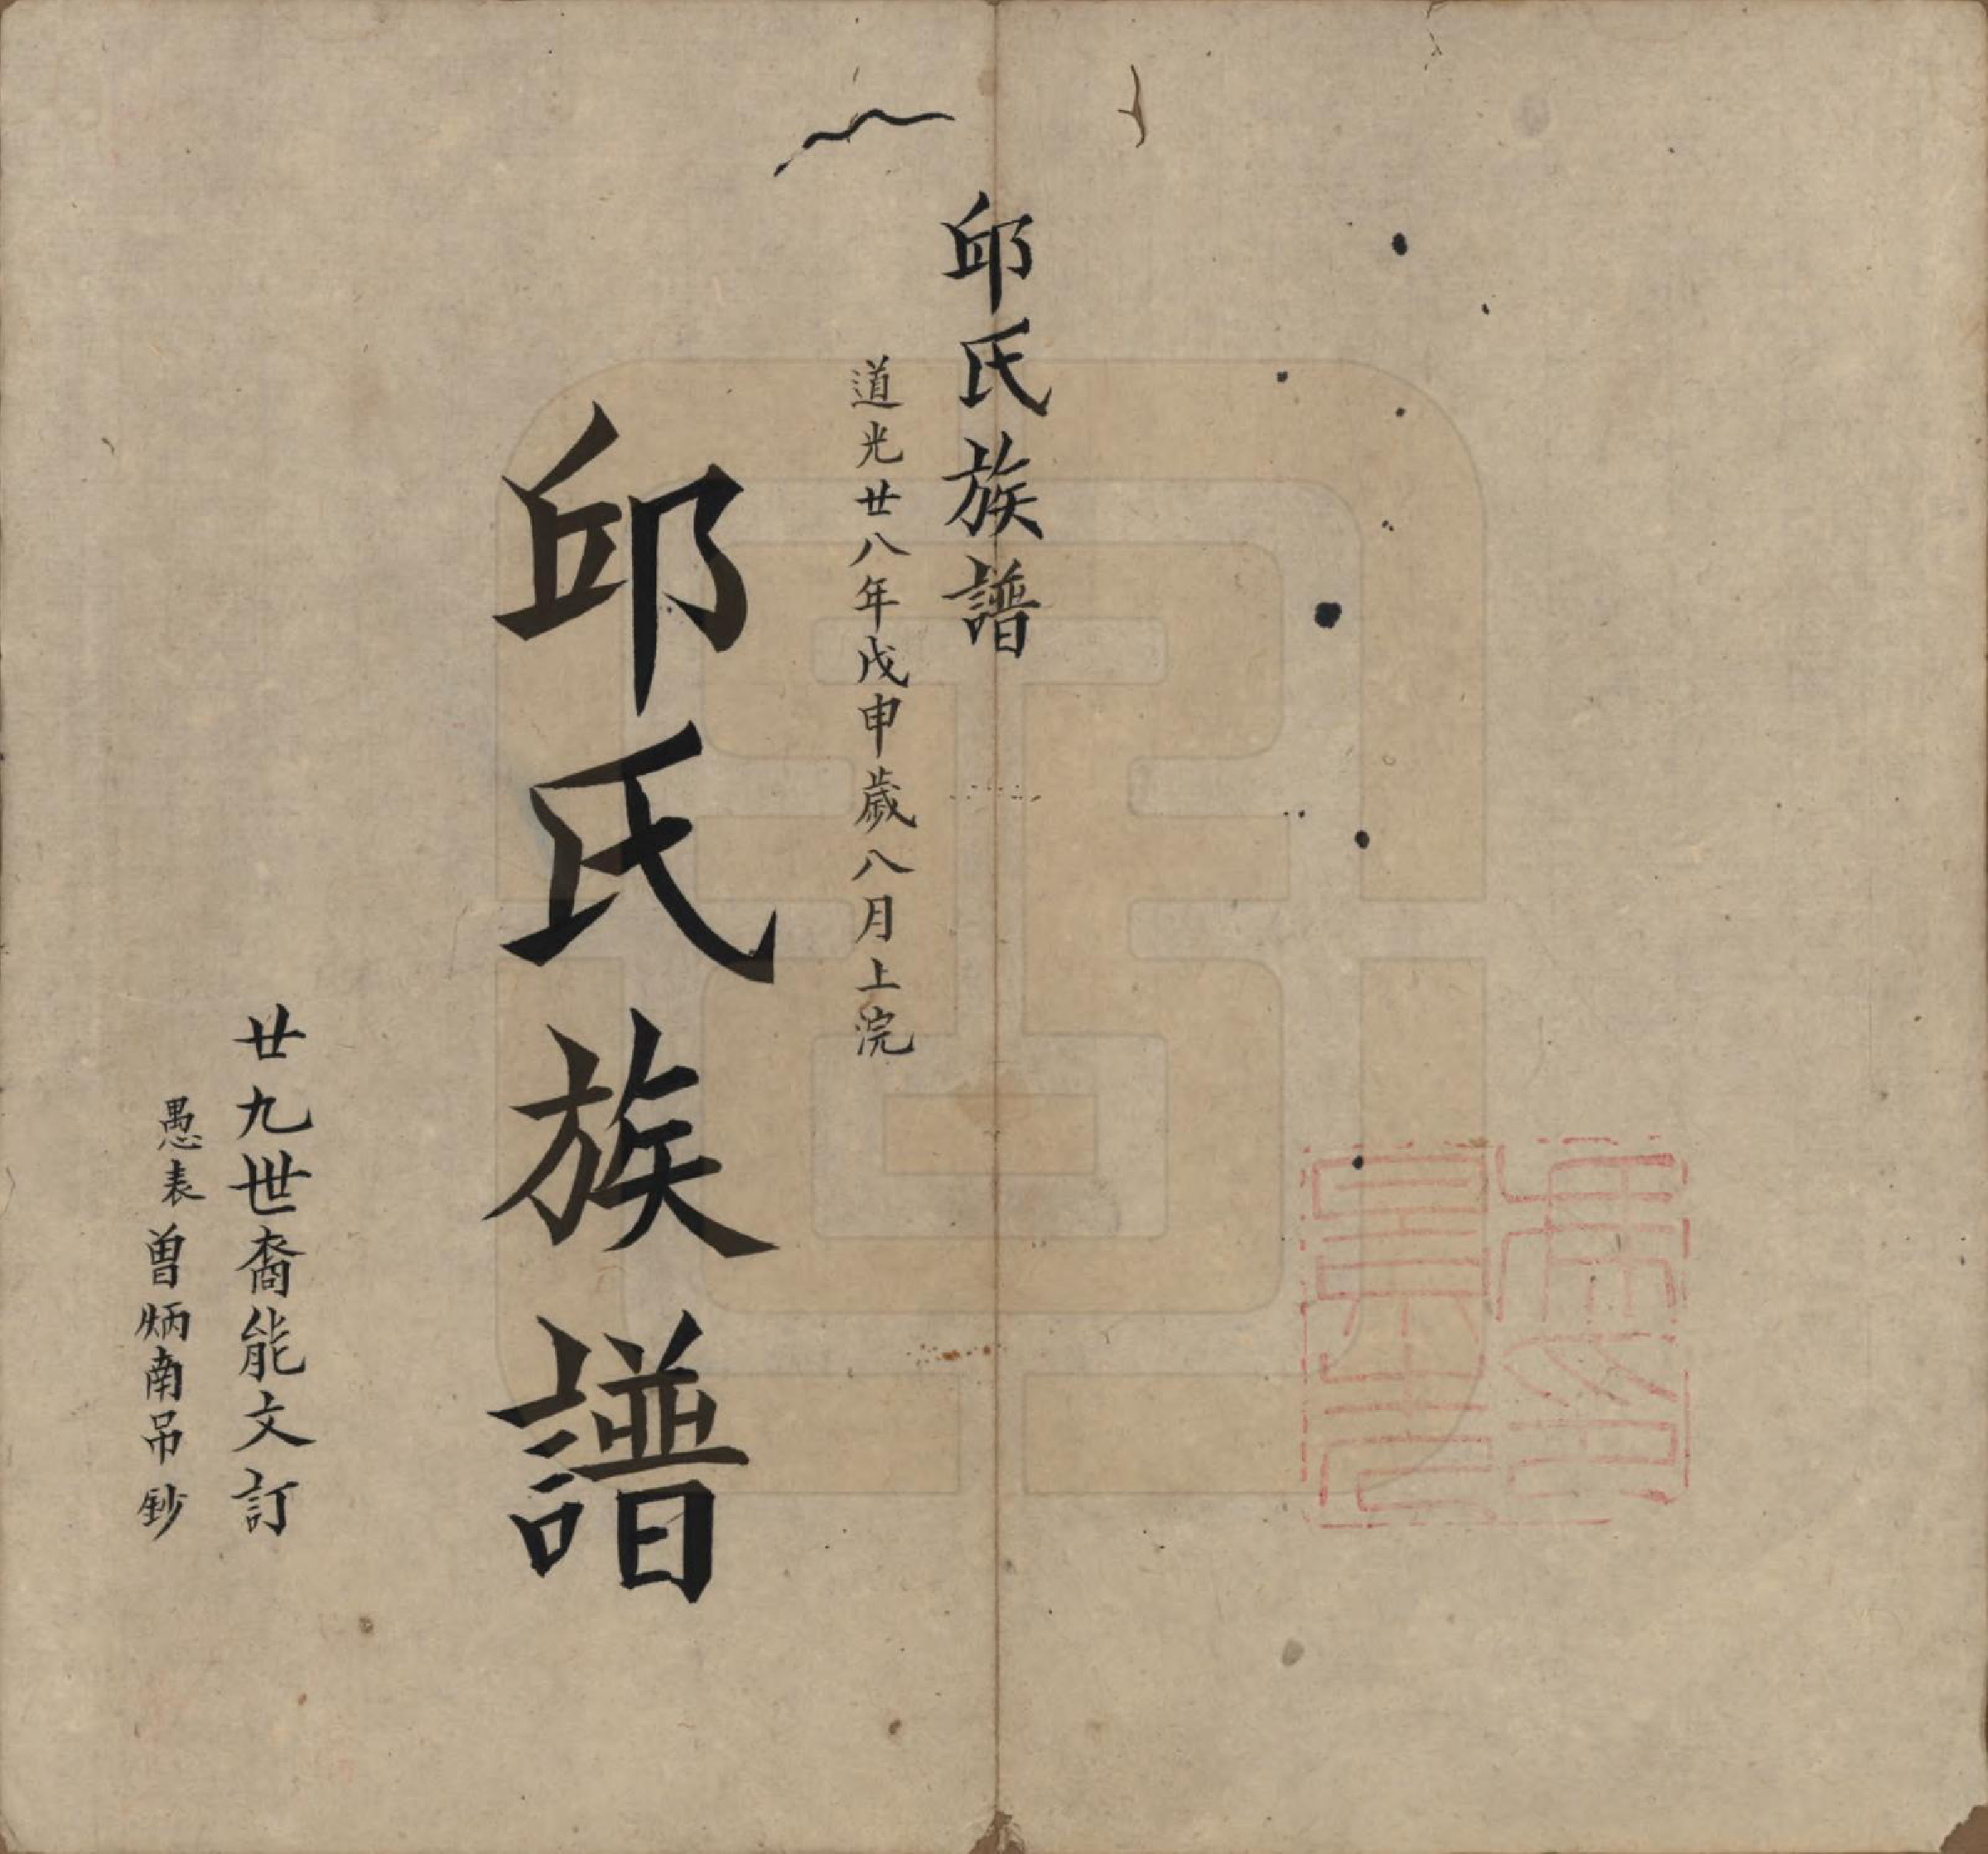 邱氏族譜
道光廿八年戊申歲八月上浣
邱氏族譜
廿九世裔能文訂
愚表曾炳南吊鈔